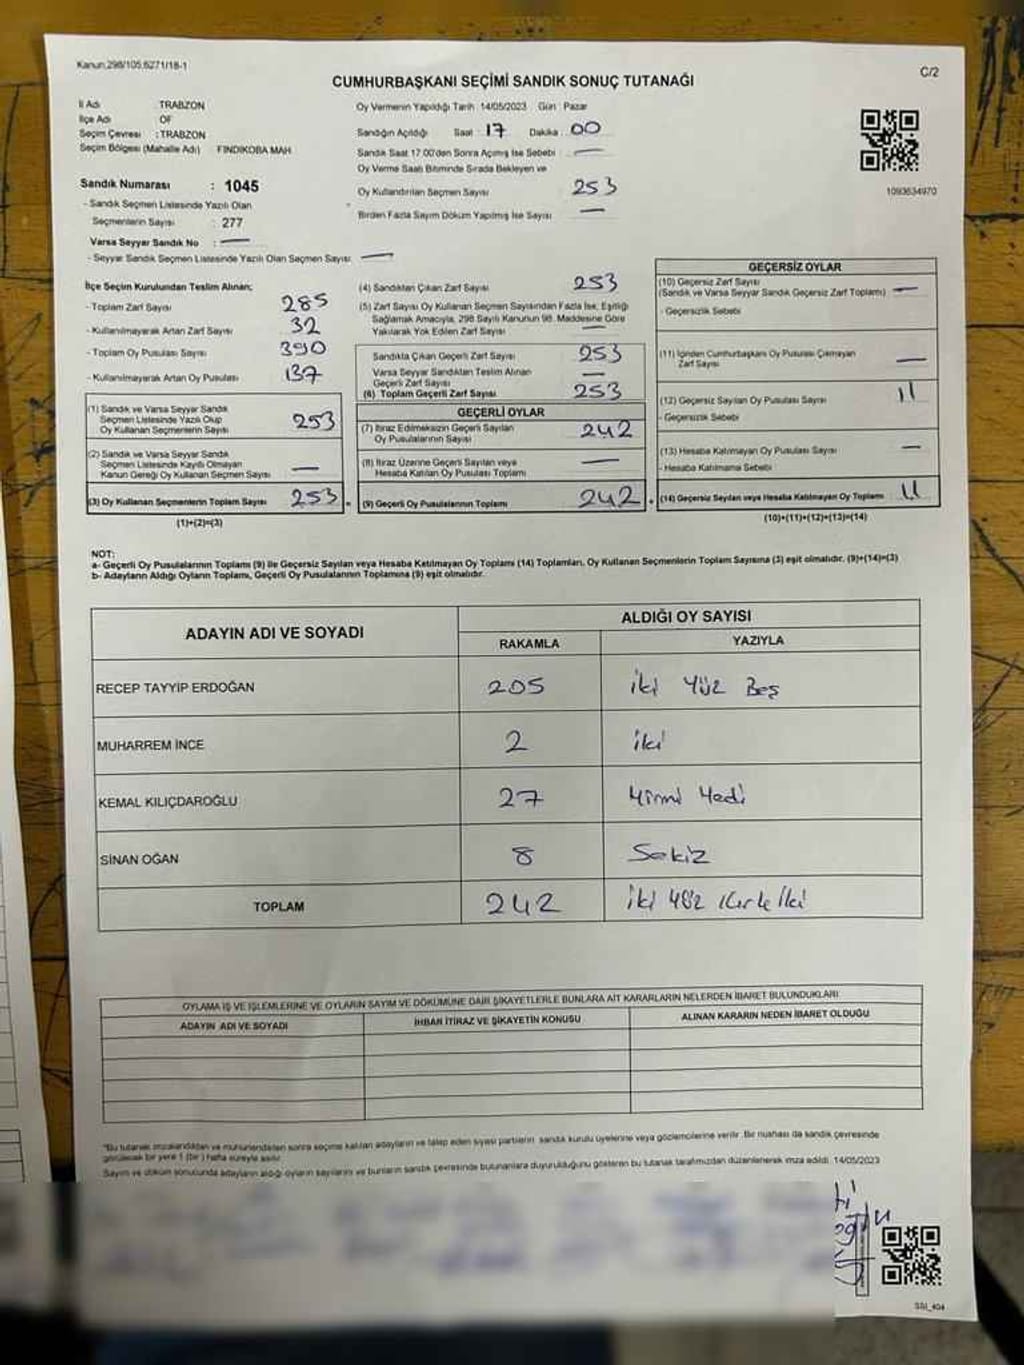 Kanun,298/105,6271/18-1
C/2
CUMHURBAŞKANI SEÇİMİ SANDIK SONUÇ TUTANAĞI
İl Adı TRABZON
İlçe Adı OF
Seçim Çevresi : TRABZON
Seçim Bölgesi (Mahalle Adı) FINDIKOBA MAH
Oy Vermenin Yapıldığı Tarih 14/05/2023 Gün : Pazar
Sandığın Açıldığı Saat : 17 Dakika : 00
Sandık Saat 17.00'den Sonra Açılmış İse Sebebi : —
Oy Verme Saati Bitiminde Sırada Bekleyen ve
Oy Kullandırılan Seçmen Sayısı 253
Birden Fazla Sayım Döküm Yapılmış İse Sayısı —
1093634970
Sandık Numarası : 1045
- Sandık Seçmen Listesinde Yazılı Olan
Seçmenlerin Sayısı : 277
Varsa Seyyar Sandık No : —
- Seyyar Sandık Seçmen Listesinde Yazılı Olan Seçmen Sayısı —
İlçe Seçim Kurulundan Teslim Alınan;
- Toplam Zarf Sayısı 285
- Kullanılmayarak Artan Zarf Sayısı 32
- Toplam Oy Pusulası Sayısı 390
- Kullanılmayarak Artan Oy Pusulası 137
(1) Sandık ve Varsa Seyyar Sandık
Seçmen Listesinde Yazılı Olup
Oy Kullanan Seçmenlerin Sayısı 253
(2) Sandık ve Varsa Seyyar Sandık
Seçmen Listesinde Kayıtlı Olmayan
Kanun Gereği Oy Kullanan Seçmen Sayısı —
(3) Oy Kullanan Seçmenlerin Toplam Sayısı 253
(1)+(2)=(3)
(4) Sandıktan Çıkan Zarf Sayısı 253
(5) Zarf Sayısı Oy Kullanan Seçmen Sayısından Fazla İse, Eşitliği
Sağlamak Amacıyla, 298 Sayılı Kanunun 98. Maddesine Göre
Yakılarak Yok Edilen Zarf Sayısı —
Sandıkta Çıkan Geçerli Zarf Sayısı 253
Varsa Seyyar Sandıktan Teslim Alınan
Geçerli Zarf Sayısı —
(6) Toplam Geçerli Zarf Sayısı 253
GEÇERLİ OYLAR
(7) İtiraz Edilmeksizin Geçerli Sayılan
Oy Pusulalarının Sayısı 242
(8) İtiraz Üzerine Geçerli Sayılan veya
Hesaba Katılan Oy Pusulası Toplamı —
(9) Geçerli Oy Pusulalarının Toplamı 242
GEÇERSİZ OYLAR
(10) Geçersiz Zarf Sayısı
(Sandık ve Varsa Seyyar Sandık Geçersiz Zarf Toplamı) —
- Geçersizlik Sebebi
(11) İçinden Cumhurbaşkanı Oy Pusulası Çıkmayan
Zarf Sayısı —
(12) Geçersiz Sayılan Oy Pusulası Sayısı 11
- Geçersizlik Sebebi
(13) Hesaba Katılmayan Oy Pusulası Sayısı —
- Hesaba Katılmama Sebebi
(14) Geçersiz Sayılan veya Hesaba Katılmayan Oy Toplamı 11
(10)+(11)+(12)+(13)=(14)
NOT:
a- Geçerli Oy Pusulalarının Toplamı (9) ile Geçersiz Sayılan veya Hesaba Katılmayan Oy Toplamı (14) Toplamları, Oy Kullanan Seçmenlerin Toplam Sayısına (3) eşit olmalıdır. (9)+(14)=(3)
b- Adayların Aldığı Oyların Toplamı, Geçerli Oy Pusulalarının Toplamına (9) eşit olmalıdır.
ADAYIN ADI VE SOYADI
ALDIĞI OY SAYISI
RAKAMLA YAZIYLA
RECEP TAYYİP ERDOĞAN 205 İki Yüz Beş
MUHARREM İNCE 2 iki
KEMAL KILIÇDAROĞLU 27 Yirmi Yedi
SİNAN OĞAN 8 Sekiz
TOPLAM 242 İki Yüz Kırk İki
OYLAMA İŞ VE İŞLEMLERİNE VE OYLARIN SAYIM VE DÖKÜMÜNE DAİR ŞİKAYETLERLE BUNLARA AİT KARARLARIN NELERDEN İBARET BULUNDUKLARI
ADAYIN ADI VE SOYADI İHBAR İTİRAZ VE ŞİKAYETİN KONUSU ALINAN KARARIN NEDEN İBARET OLDUĞU
"Bu tutanak imzalandıktan ve mühürlendikten sonra seçime katılan adayların ve talep eden siyasi partilerin sandık kurulu üyelerine veya gözlemcilerine verilir. Bir nüshası da sandık çevresinde
görülecek bir yere 1 (bir) hafta süreyle asılır.
Sayım ve döküm sonucunda adayların aldığı oyların sayılarını ve bunların sandık çevresinde bulunanlara duyurulduğunu gösteren bu tutanak tarafımızdan düzenlenerek imza edildi. 14/05/2023
SSI_404